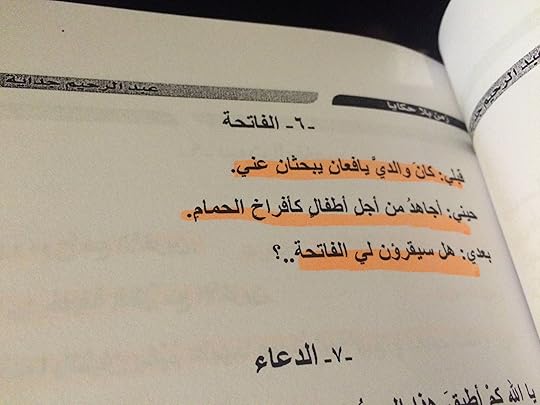 عبد الرحيم جداية
زمن بلا حكايا
-٦- الفاتحة
قبلي: كانَ والديَّ يافعان يبحثان عني.
حيني: أجاهدُ من أجل أطفالٍ كأفراخ الحمام.
بعدي: هل سيقرؤن لي الفاتحة..؟
-٧- الدعاء
يا الله كمْ أطيقُ هذا